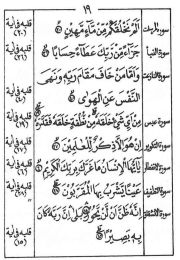 ١٩
سورة المرسلات أَلَمْ نَخْلُقكُّم مِّن مَّآءٍ مَّهِينٍ قلبه في آية (٢٠)
سورة النبأ جَزَآءً مِّن رَّبِّكَ عَطَآءً حِسَابًا قلبه في آية (٣٦)
سورة النازعات وَأَمَّا مَنْ خَافَ مَقَامَ رَبِّهِ وَنَهَى قلبه في آية
النَّفْسَ عَنِ الْهَوَىٰ (٤٠)
سورة عبس مِنْ أَيِّ شَيْءٍ خَلَقَهُ مِن نُّطْفَةٍ خَلَقَهُ فَقَدَّرَهُ قلبه في آية
سورة التكوير إِنْ هُوَ إِلَّا ذِكْرٌ لِّلْعَالَمِينَ قلبه في آية (٢٧)
سورة الانفطار يَا أَيُّهَا الْإِنسَانُ مَا غَرَّكَ بِرَبِّكَ الْكَرِيمِ قلبه في آية (٦)
سورة التطفيف عَيْنًا يَشْرَبُ بِهَا الْمُقَرَّبُونَ قلبه في آية (٢٨)
سورة الانشقاق إِنَّهُ ظَنَّ أَن لَّن يَحُورَ بَلَىٰ إِنَّ رَبَّهُ كَانَ قلبه في آية
بِهِ بَصِيرًا (١٥)